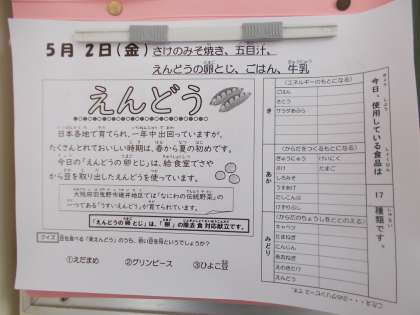 5月 2日(金) さけのみそ焼き、五目汁、
えんどうの卵とじ、ごはん、牛乳
えんどう
日本各地で育てられ、一年中出回っていますが、
たくさんとれておいしい時期は、春から夏の初めです。
今日の「えんどうの卵とじ」は、給食室でさや
から豆を取り出したえんどうを使っています。
大阪府羽曳野市碓井地区では「なにわの伝統野菜」の
一つである「うすいえんどう」が育てられています。
「えんどうの卵とじ」は、「卵」の除去食対応献立です。
クイズ 豆を食べる「実えんどう」のうち、若い豆を何というでしょうか?
①えだまめ ②グリンピース ③ひよこ豆
今日、使用している食品は 17 種類です。
き
(エネルギーのもとになる)
ごはん
さとう
サラダあぶら
あか
(からだをつくるもとになる)
ぎゅうにゅう けいにく
さけ たまご
しろみそ
うすあげ
だしこんぶ
けずりぶし
みどり
(からだのちょうしをととのえる)
キャベツ
たまねぎ
にんじん
えのきたけ
えんどう